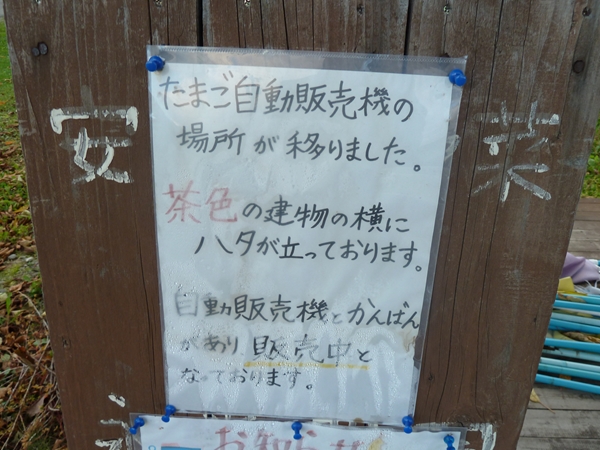 たまご自動販売機の
場所が移りました。
茶色の建物の横に
ハタが立っております。
自動販売機とかんばん
があり販売中と
なっております。
安
お知らせ